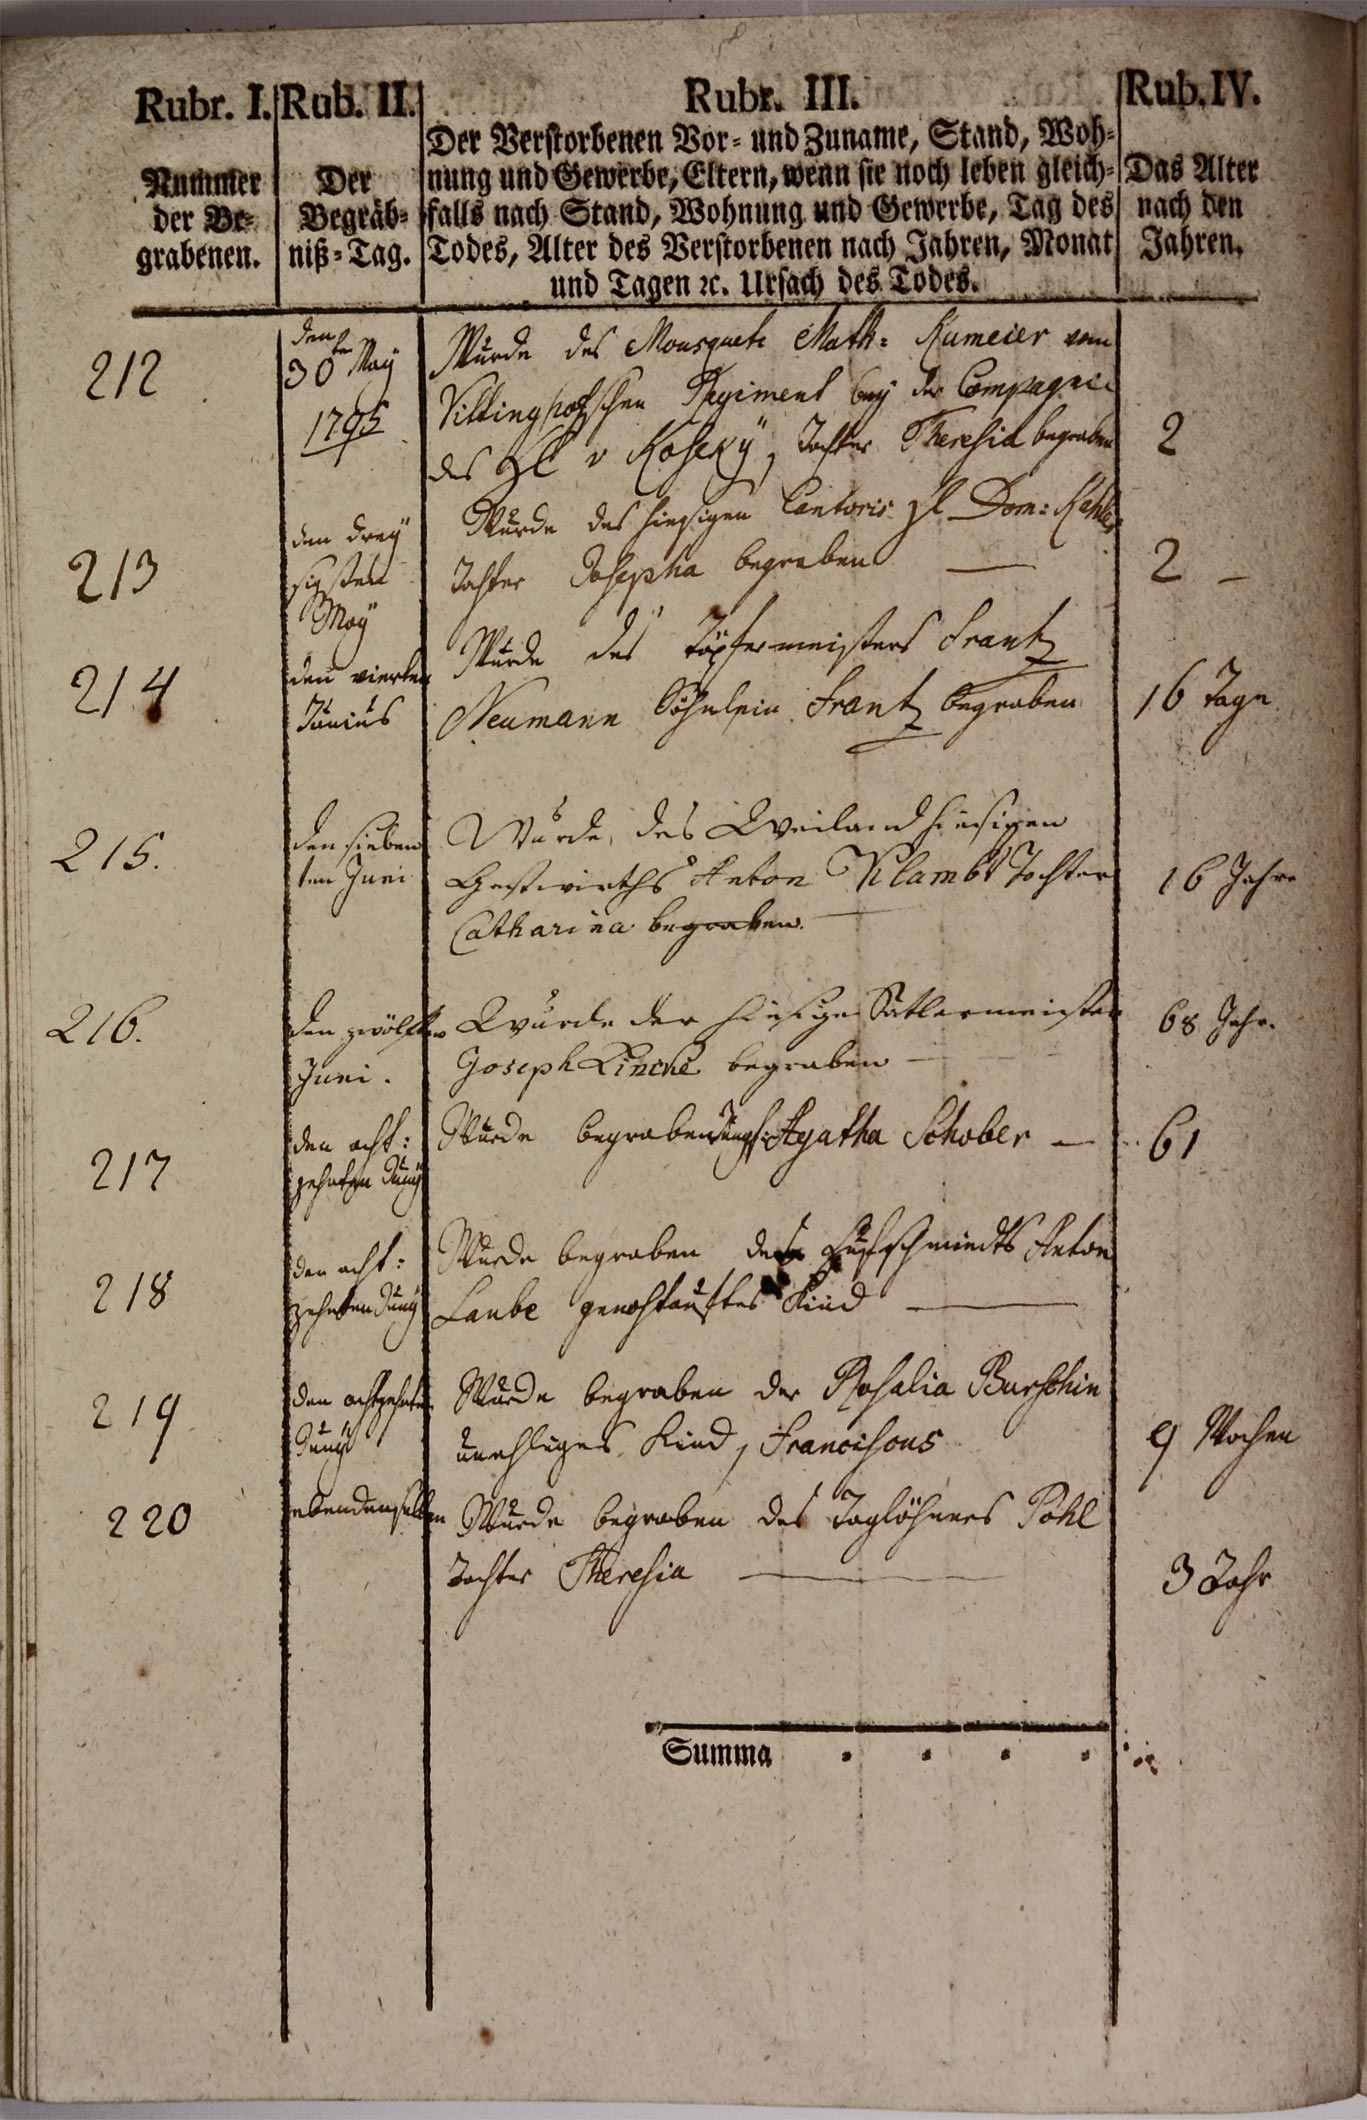 Rubr. I. Rub. II. Rubr. III. Rub. IV.
Nummer der Be-
grabenen.
Der
Begräb-
niß-Tag.
Der Verstorbenen Vor- und Zuname, Stand, Woh-
nung und Gewerbe, Eltern, wenn sie noch leben gleich-
falls nach Stand, Wohnung und Gewerbe, Tag des
Todes, Alter des Verstorbenen nach Jahren, Monat
und Tagen ꝛc. Ursach des Todes.
Das Alter
nach den
Jahren.
212
den
30ten May
1795
Wurde des Mousquete Math: Kumeier vom
Vittinghofschen Regiment bey der Compagnie
des v Tochter Theresia begraben
2
213
den drey
sigsten
May
Wurde des hiesigen Cantoris Dom:
Tochter Josepha begraben —
2 –
214
den vierten
Junius
Wurde des Töpfermeisters Frantz
Neumann Söhnlein Frantz begraben
16 Tage
215.
den sieben
ten Juni
Wurde, des Weiland hiesigen
Gastwirths Anton Klambt Tochter
Catharina begraben. —
16 Jahre
216.
den zwölften
Juni.
Wurde der hiesige Satlermeister
Joseph begraben —
68 Jahr.
217
den acht:
zehnten Juny
Wurde begraben Jungf: Agatha Schober —
61
218
den acht:
zehnten Juny
Wurde begraben des Anton
Laube Kind —
219
den achtzehnten
Juny
Wurde begraben der Rosalia
unehliges Kind, Franciscus
9 Wochen
220
ebendenselben
Wurde begraben des Taglöhners Pohl
Tochter Theresia —
3 Jahr
Summa